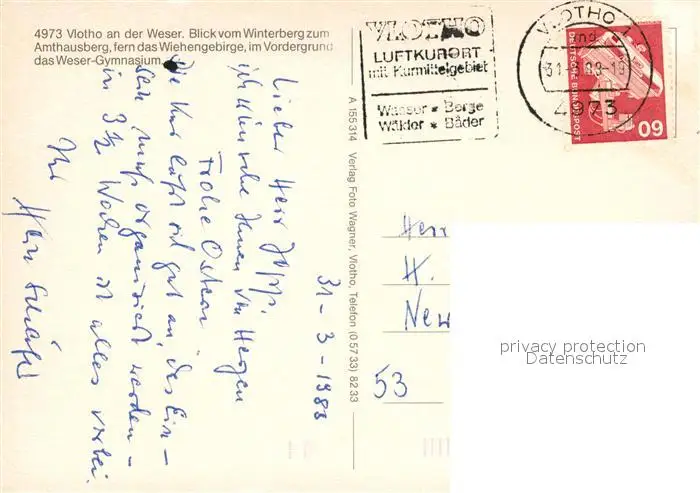 4973 Vlotho an der Weser. Blick vom Winterberg zum
Amthausberg, fern das Wiehengebirge, im Vordergrund
das Weser-Gymnasium
VLOTHO
LUFTKURORT
mit Kurmittelgebiet
Wasser * Berge
Wälder * Bäder
VLOTHO 1
4973
DEUTSCHE BUNDESPOST
60
A 155 314 Verlag Foto Wagner, Vlotho, Telefon (0 57 33) 82 33
31-3-1988
Lieber Herr
ich wünsche Ihnen von Herzen
Frohe Ostern
Die Kur läßt sich gut an, das Ein-
sein muß organisiert werden -
in 3½ Wochen ist alles vorbei.
Ihr
Herrn
H.
New
53
privacy protection
Datenschutz